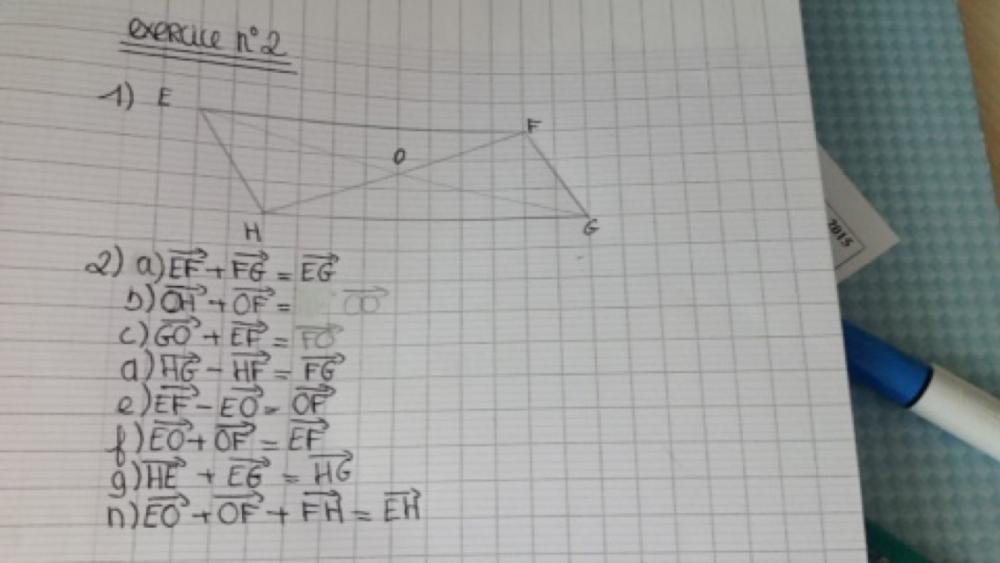 exercice n°2
1) E
F
O
H
G
2) a) EF⃗ + FG⃗ = EG⃗
b) OH⃗ + OF⃗ = OO⃗
c) GO⃗ + EF⃗ = FO⃗
d) HG⃗ - HF⃗ = FG⃗
e) EF⃗ - EO⃗ = OF⃗
f) EO⃗ + OF⃗ = EF⃗
g) HE⃗ + EG⃗ = HG⃗
h) EO⃗ + OF⃗ + FH⃗ = EH⃗
2015